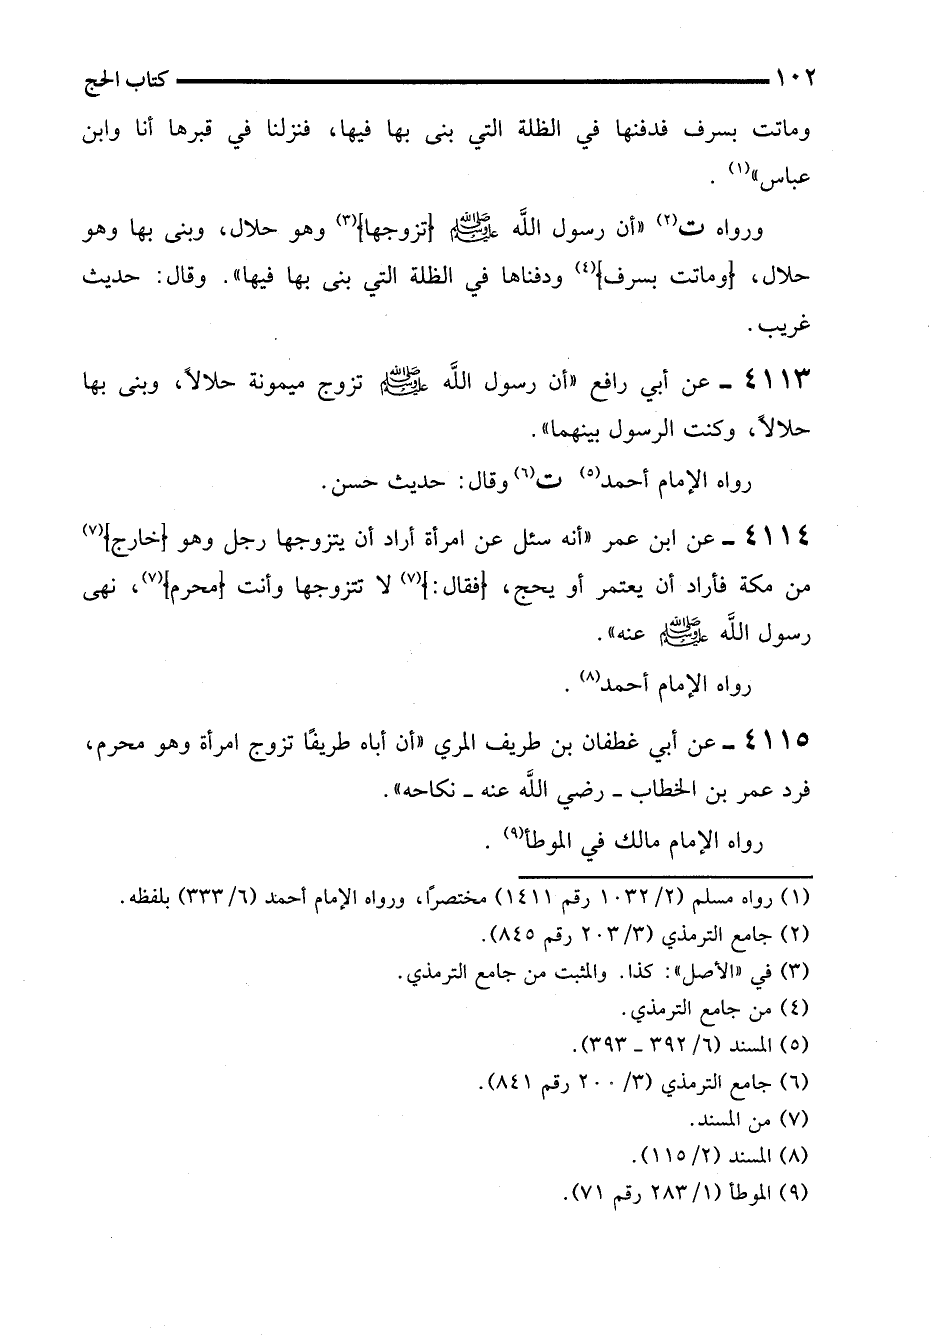 ١٠٢ كتاب الحج
وماتت بسرف فدفنها في الظلة التي بنى بها فيها، فنزلنا في قبرها أنا وابن
عباس»(١) .
ورواه ت(٢) «أن رسول اللَّه ﷺ {تزوجها}(٣) وهو حلال، وبنى بها وهو
حلال، {وماتت بسرف}(٤) ودفناها في الظلة التي بنى بها فيها». وقال: حديث
غريب.
٤١١٣ ـ عن أبي رافع «أن رسول اللَّه ﷺ تزوج ميمونة حلالاً، وبنى بها
حلالاً، وكنت الرسول بينهما».
رواه الإمام أحمد(٥) ت(٦) وقال: حديث حسن.
٤١١٤ ـ عن ابن عمر «أنه سئل عن امرأة أراد أن يتزوجها رجل وهو {خارج}(٧)
من مكة فأراد أن يعتمر أو يحج، {فقال:}(٧) لا تتزوجها وأنت {محرم}(٧)، نهى
رسول اللَّه ﷺ عنه».
رواه الإمام أحمد(٨) .
٤١١٥ ـ عن أبي غطفان بن طريف المري «أن أباه طريفًا تزوج امرأة وهو محرم،
فرد عمر بن الخطاب ـ رضي اللَّه عنه ـ نكاحه».
رواه الإمام مالك في الموطأ(٩) .
(١) رواه مسلم (٢/ ١٠٣٢ رقم ١٤١١) مختصرًا، ورواه الإمام أحمد (٦/ ٣٣٣) بلفظه.
(٢) جامع الترمذي (٣/ ٢٠٣ رقم ٨٤٥).
(٣) في «الأصل»: كذا. والمثبت من جامع الترمذي.
(٤) من جامع الترمذي.
(٥) المسند (٦/ ٣٩٢ ـ ٣٩٣).
(٦) جامع الترمذي (٣/ ٢٠٠ رقم ٨٤١).
(٧) من المسند.
(٨) المسند (٢/ ١١٥).
(٩) الموطأ (١/ ٢٨٣ رقم ٧١).